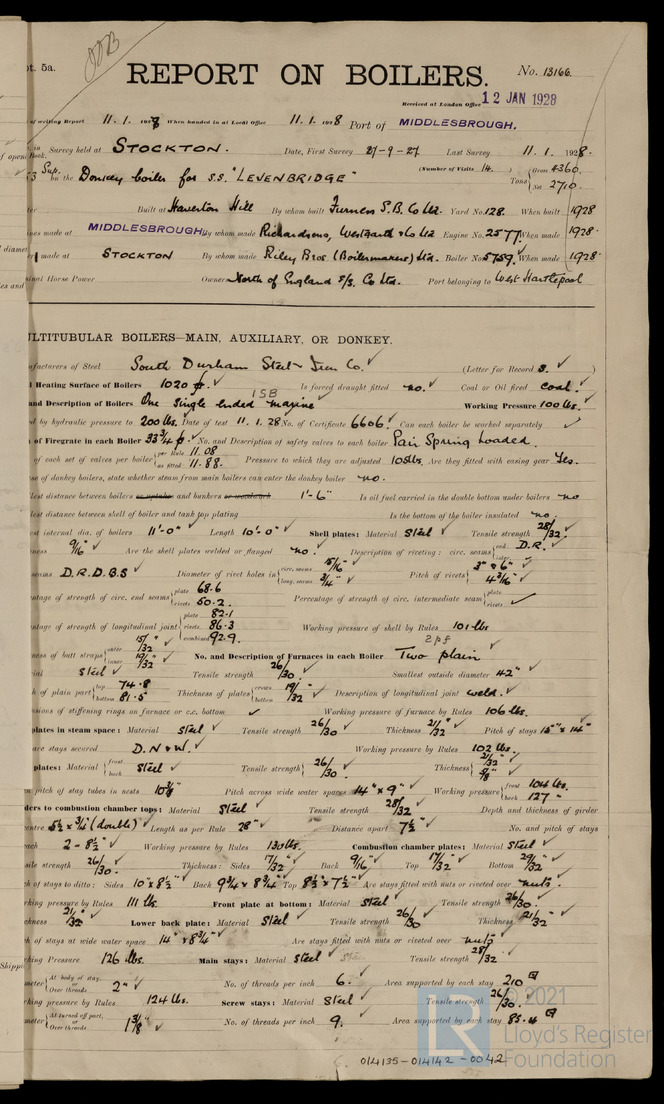 pt. 5a.
REPORT ON BOILERS.
No. 13166.
Received at London Office 12 JAN 1928
of writing Report 11. 1. 1928 When handed in at Local Office 11. 1. 1928 Port of MIDDLESBROUGH.
Survey held at STOCKTON. Date, First Survey 27-9-27 Last Survey 11. 1. 1928.
on the Donkey boiler for S.S. "LEVENBRIDGE" (Number of Visits 14.) Tons { Gross 4360.
Net 2710.
Built at Haverton Hill By whom built Furness S.B. Co Ltd. Yard No. 128. When built 1928
ines made at MIDDLESBROUGH By whom made Richardsons, Westgarth & Co Ltd Engine No. 2577 When made 1928.
made at STOCKTON By whom made Riley Bros. (Boilermakers) Ltd. Boiler No. 5759. When made 1928.
inal Horse Power Owners North of England S/S. Co Ltd. Port belonging to West Hartlepool
ULTITUBULAR BOILERS—MAIN, AUXILIARY, OR DONKEY.
nufacturers of Steel South Durham Steel & Iron Co. (Letter for Record S.)
l Heating Surface of Boilers 1020 Is forced draught fitted no. Coal or Oil fired coal.
ISB
and Description of Boilers One Single ended marine Working Pressure 100 lbs.
d by hydraulic pressure to 200 lbs. Date of test 11. 1. 28 No. of Certificate 6606. Can each boiler be worked separately
of Firegrate in each Boiler 33 3/4 No. and Description of safety valves to each boiler Pair Spring Loaded.
of each set of valves per boiler { per Rule 11.08
as fitted 11.88. Pressure to which they are adjusted 105 lbs. Are they fitted with easing gear Yes.
se of donkey boilers, state whether steam from main boilers can enter the donkey boiler no.
llest distance between boilers or uptakes and bunkers or woodwork 1'-6" Is oil fuel carried in the double bottom under boilers no
llest distance between shell of boiler and tank top plating Is the bottom of the boiler insulated no.
est internal dia. of boilers 11'-0" Length 10'-0" Shell plates: Material Steel Tensile strength 28/32.
ness 9/16" Are the shell plates welded or flanged no. Description of riveting: circ. seams { end D.R.
inter.
seams D.R.D.B.S Diameter of rivet holes in { circ. seams 15/16"
long. seams Pitch of rivets { 3" & 6"
4 3/16"
ntage of strength of circ. end seams { plate 68.6
rivets 50.2. Percentage of strength of circ. intermediate seam { plate
rivets
ntage of strength of longitudinal joint { plate 82.1
rivets 86.3
combined 92.9. Working pressure of shell by Rules 101 lbs
2pf
ness of butt straps { outer 15/32"
inner 19/32" No. and Description of Furnaces in each Boiler Two plain
rial Steel Tensile strength 26/30 Smallest outside diameter 42"
h of plain part { top 74.8
bottom 81.5 Thickness of plates { crown 19/32
bottom Description of longitudinal joint weld.
nsions of stiffening rings on furnace or c.c. bottom Working pressure of furnace by Rules 106 lbs.
plates in steam space: Material Steel Tensile strength 26/30 Thickness 21/32" Pitch of stays 15" x 14"
are stays secured D.N & W. Working pressure by Rules 102 lbs.
plates: Material { front
back Steel Tensile strength { 26/30 Thickness { 21/32"
5/8"
n pitch of stay tubes in nests 10 3/8" Pitch across wide water spaces 14" x 9" Working pressure { front 104 lbs.
back 127 "
ders to combustion chamber tops: Material Steel Tensile strength 28/32 Depth and thickness of girder
entre 5 1/2 x 3/4 (double) Length as per Rule 28" Distance apart 7 1/2 No. and pitch of stays
each 2 - 8 1/2" Working pressure by Rules 130 lbs. Combustion chamber plates: Material Steel
sile strength 26/30. Thickness: Sides 17/32" Back 9/16" Top 17/32" Bottom 29/32"
h of stays to ditto: Sides 10" x 8 1/2" Back 9 3/4 x 8 3/4" Top 8 1/2 x 7 1/2" Are stays fitted with nuts or riveted over nuts.
rking pressure by Rules 111 lbs. Front plate at bottom: Material Steel Tensile strength 26/30.
ckness 21/32" Lower back plate: Material Steel Tensile strength 26/30 Thickness 21/32"
h of stays at wide water space 14" x 8 3/4" Are stays fitted with nuts or riveted over nuts
king Pressure 126 lbs. Main stays: Material Steel Tensile strength 28/32
meter { At body of stay,
or
Over threads 2" No. of threads per inch 6. Area supported by each stay 210
king pressure by Rules 124 lbs. Screw stays: Material Steel Tensile strength 26/30.
meter { At turned off part,
or
Over threads 1 3/8" No. of threads per inch 9. Area supported by each stay 85.4
© 2021
Lloyd's Register
Foundation
014135-014142-0042